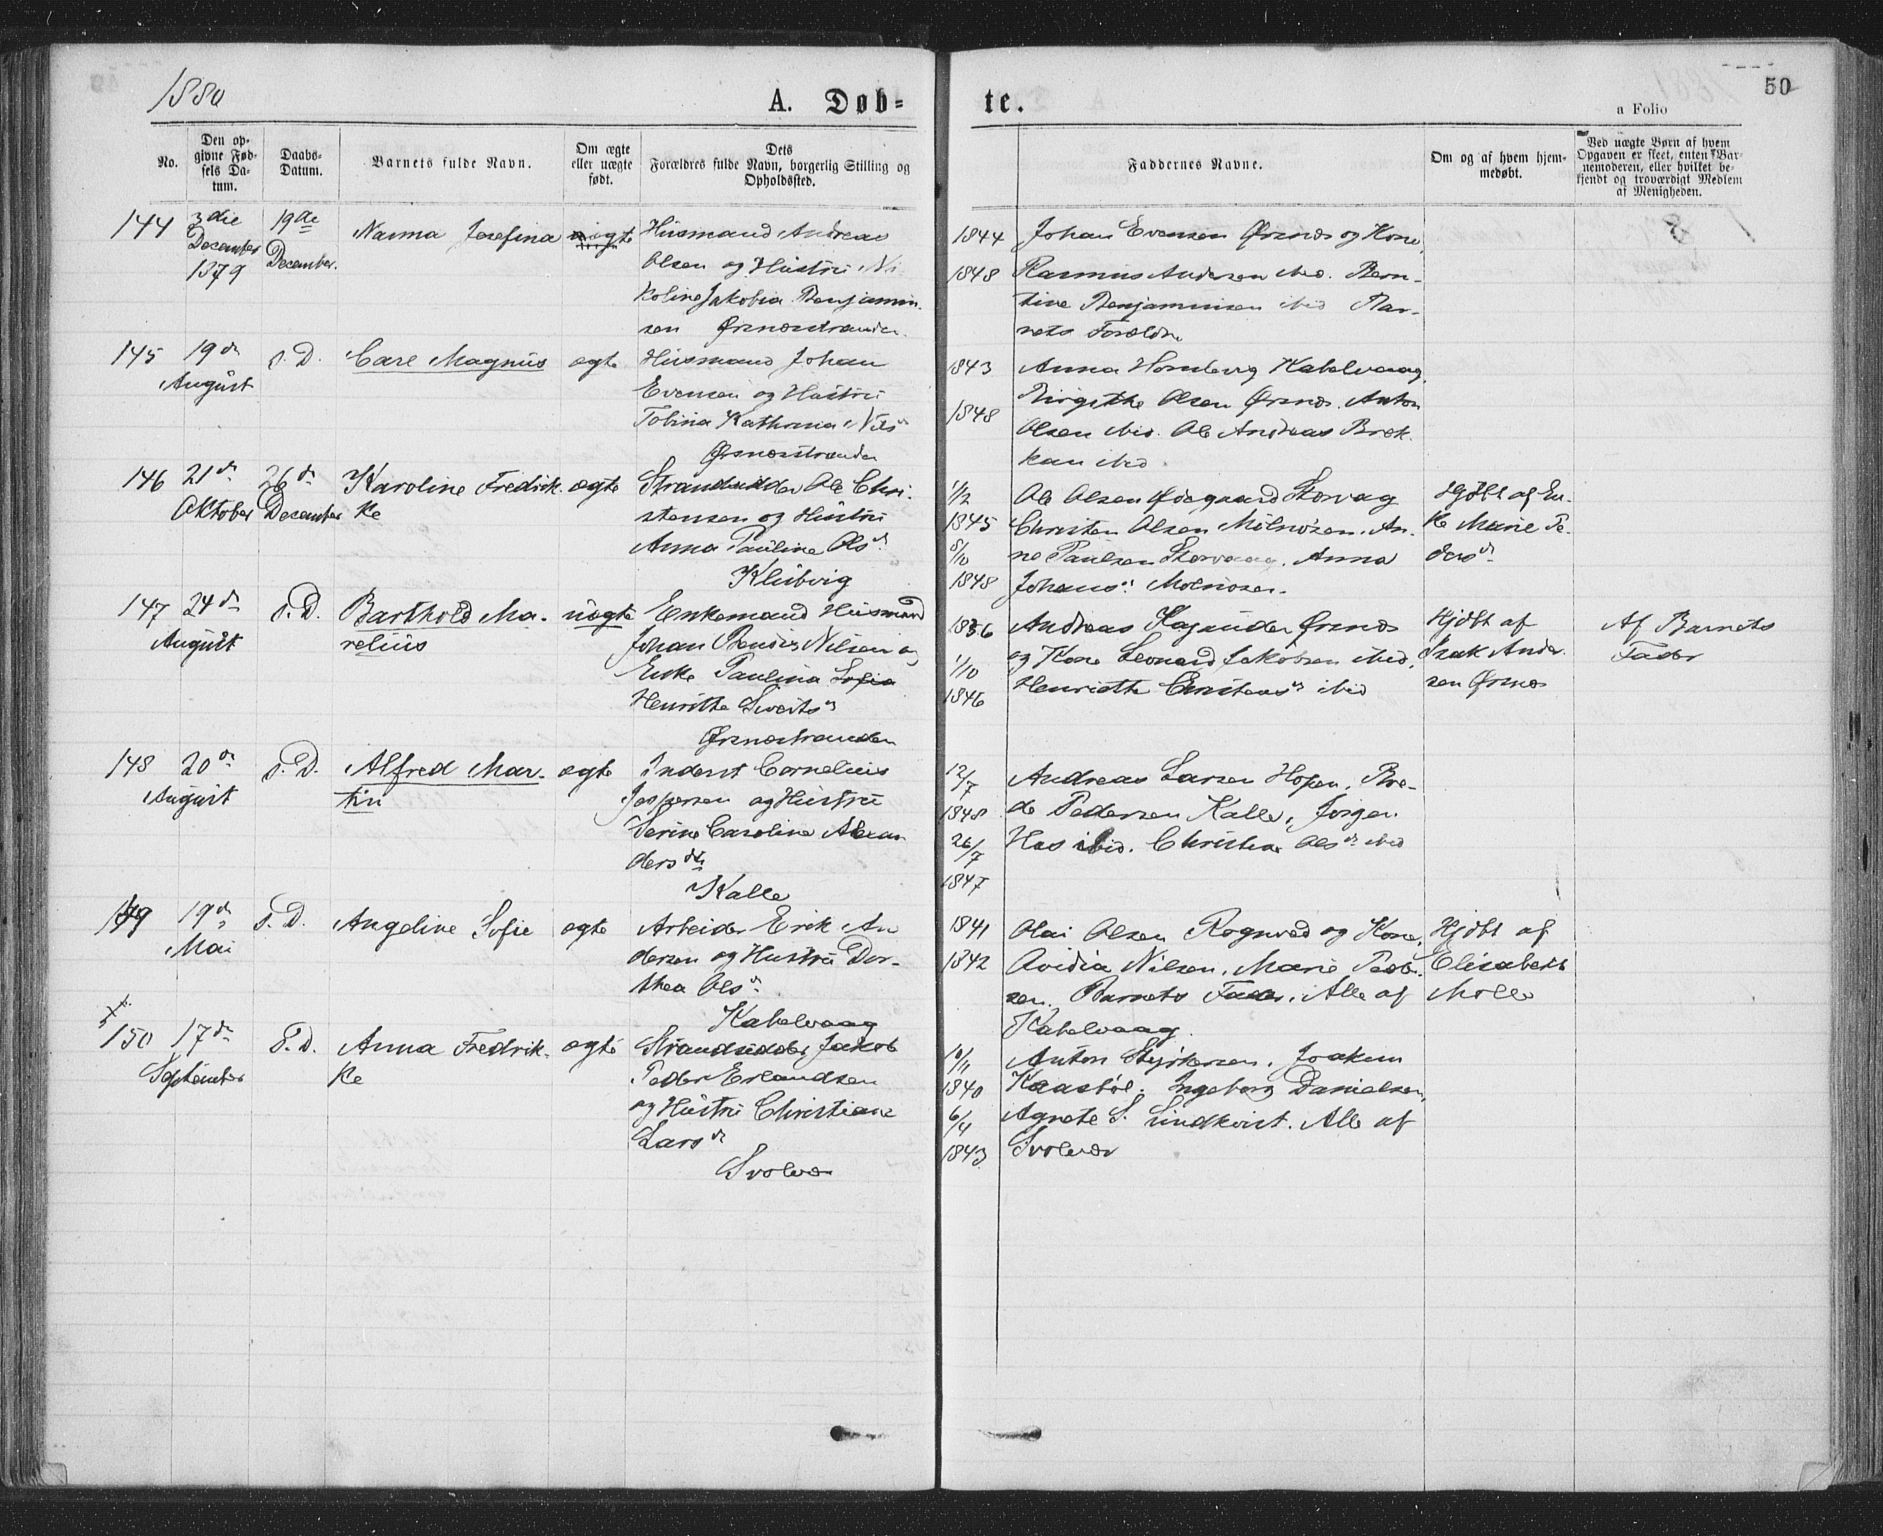 1880
A. Døb=
te.
50
a Folio
No.
Den op-
givne Fød-
sels Da-
tum.
Daabs-
Datum.
Barnets fulde Navn.
Om ægte
eller uægte
født.
Dets
Forældres fulde Navn, borgerlig Stilling og
Opholdssted.
Faddernes Navne.
Om og af hvem hjem-
medøbt.
Ved uægte Børn af hvem
Opgaven er skeet, enten Bar-
nemoderen, eller hvilket be-
kjendt og troværdigt Medlem
af Menigheden.
144
3die
December
1879
19de
December.
Nanna Josefina
ægte
Husmand Andreas
Olsen og Hustru Ni
koline Jakobia Benjamin-
sen Ørsnæsstranden.
1844
1848
Johan Evensen Ørsnæs og Kone,
Rasmus Andersen ibid. Bern-
tine Benjaminsen ibid Bar-
nets Forældre
145
19de
August
s. D.
Care Magnus
ægte
Husmand Johan
Evensen og Hustru
Tobina Kathrina Nilsdr
Ørsnæsstranden
1843
1848
Anna Hornberg Kabelvaag,
Birgitte Olsen Ørsnæs. Anton
Olsen ibid. Ole Andreas Brek-
kan ibid
146
21de
Oktober
26de
December
Karoline Fredrik-
ke
ægte
Strandsidder Ole Chri-
stensen og Hustru
Anna Pauline Olsdr
Klubvig
1/12
1845
8/10
1848
Ole Olsen Ødegaard Storvag
Christen Olsen Molnosen. An-
ne Paulsen Storvaag. Anna
Johansdr Molnosen.
Hjdbt af En-
ke Marie Pe-
dersdr
147
24de
August
s. D.
Barthold Ma-
relius
uægte
Enkemand Husmand
Johan Nilsen og
Enke Paulina Sofia
Henritte Sivertsdr
Ørsnæstranden
1836
1/10
1846
Andreas Ørsnæs
og Kone Leonard Jakobsen ibid.
Henriette ibid
Hjdbt af
Isak Ander-
sen Ørsnæs
Af Barnets
Fader
148
20de
August
s. D.
Alfred Mar-
tin
ægte
Inderst Cornelius
Jespersen og Hustru
Serine Caroline Alexan-
dersdtr
Kalle
12/7
1848
26/7
1847
Andreas Larsen Hopen. Pe-
der Pedersen Kalle, Jørgen
Hos ibid. Christine Olsdr ibid
149
19de
Mai
s. D.
Angeline Sofie
ægte
Arbeider Erik An
dersen og Hustru Dor-
thea Olsdr
Kabelvaag
1841
1842
Olai Olsen Rognved og Kone,
Ovidia Nilsen. Marie Peder-
sen. Barnets Fader. Alle af
Kabelvaag.
Hjdbt af
Elisabeth
Molle
150
17de
September
s. D.
Anna Fredrik-
ke
ægte
Strandsidder Jakob
Peder Erlandsen
og Hustru Christiane
Larsdr
Svolvær
10/11
1840
6/4
1843
Anton Styrkersen. Joakim
Kaasbøl. Ingeborg Danielsen,
Agnete S. Lindkvist. Alle af
Svolvær